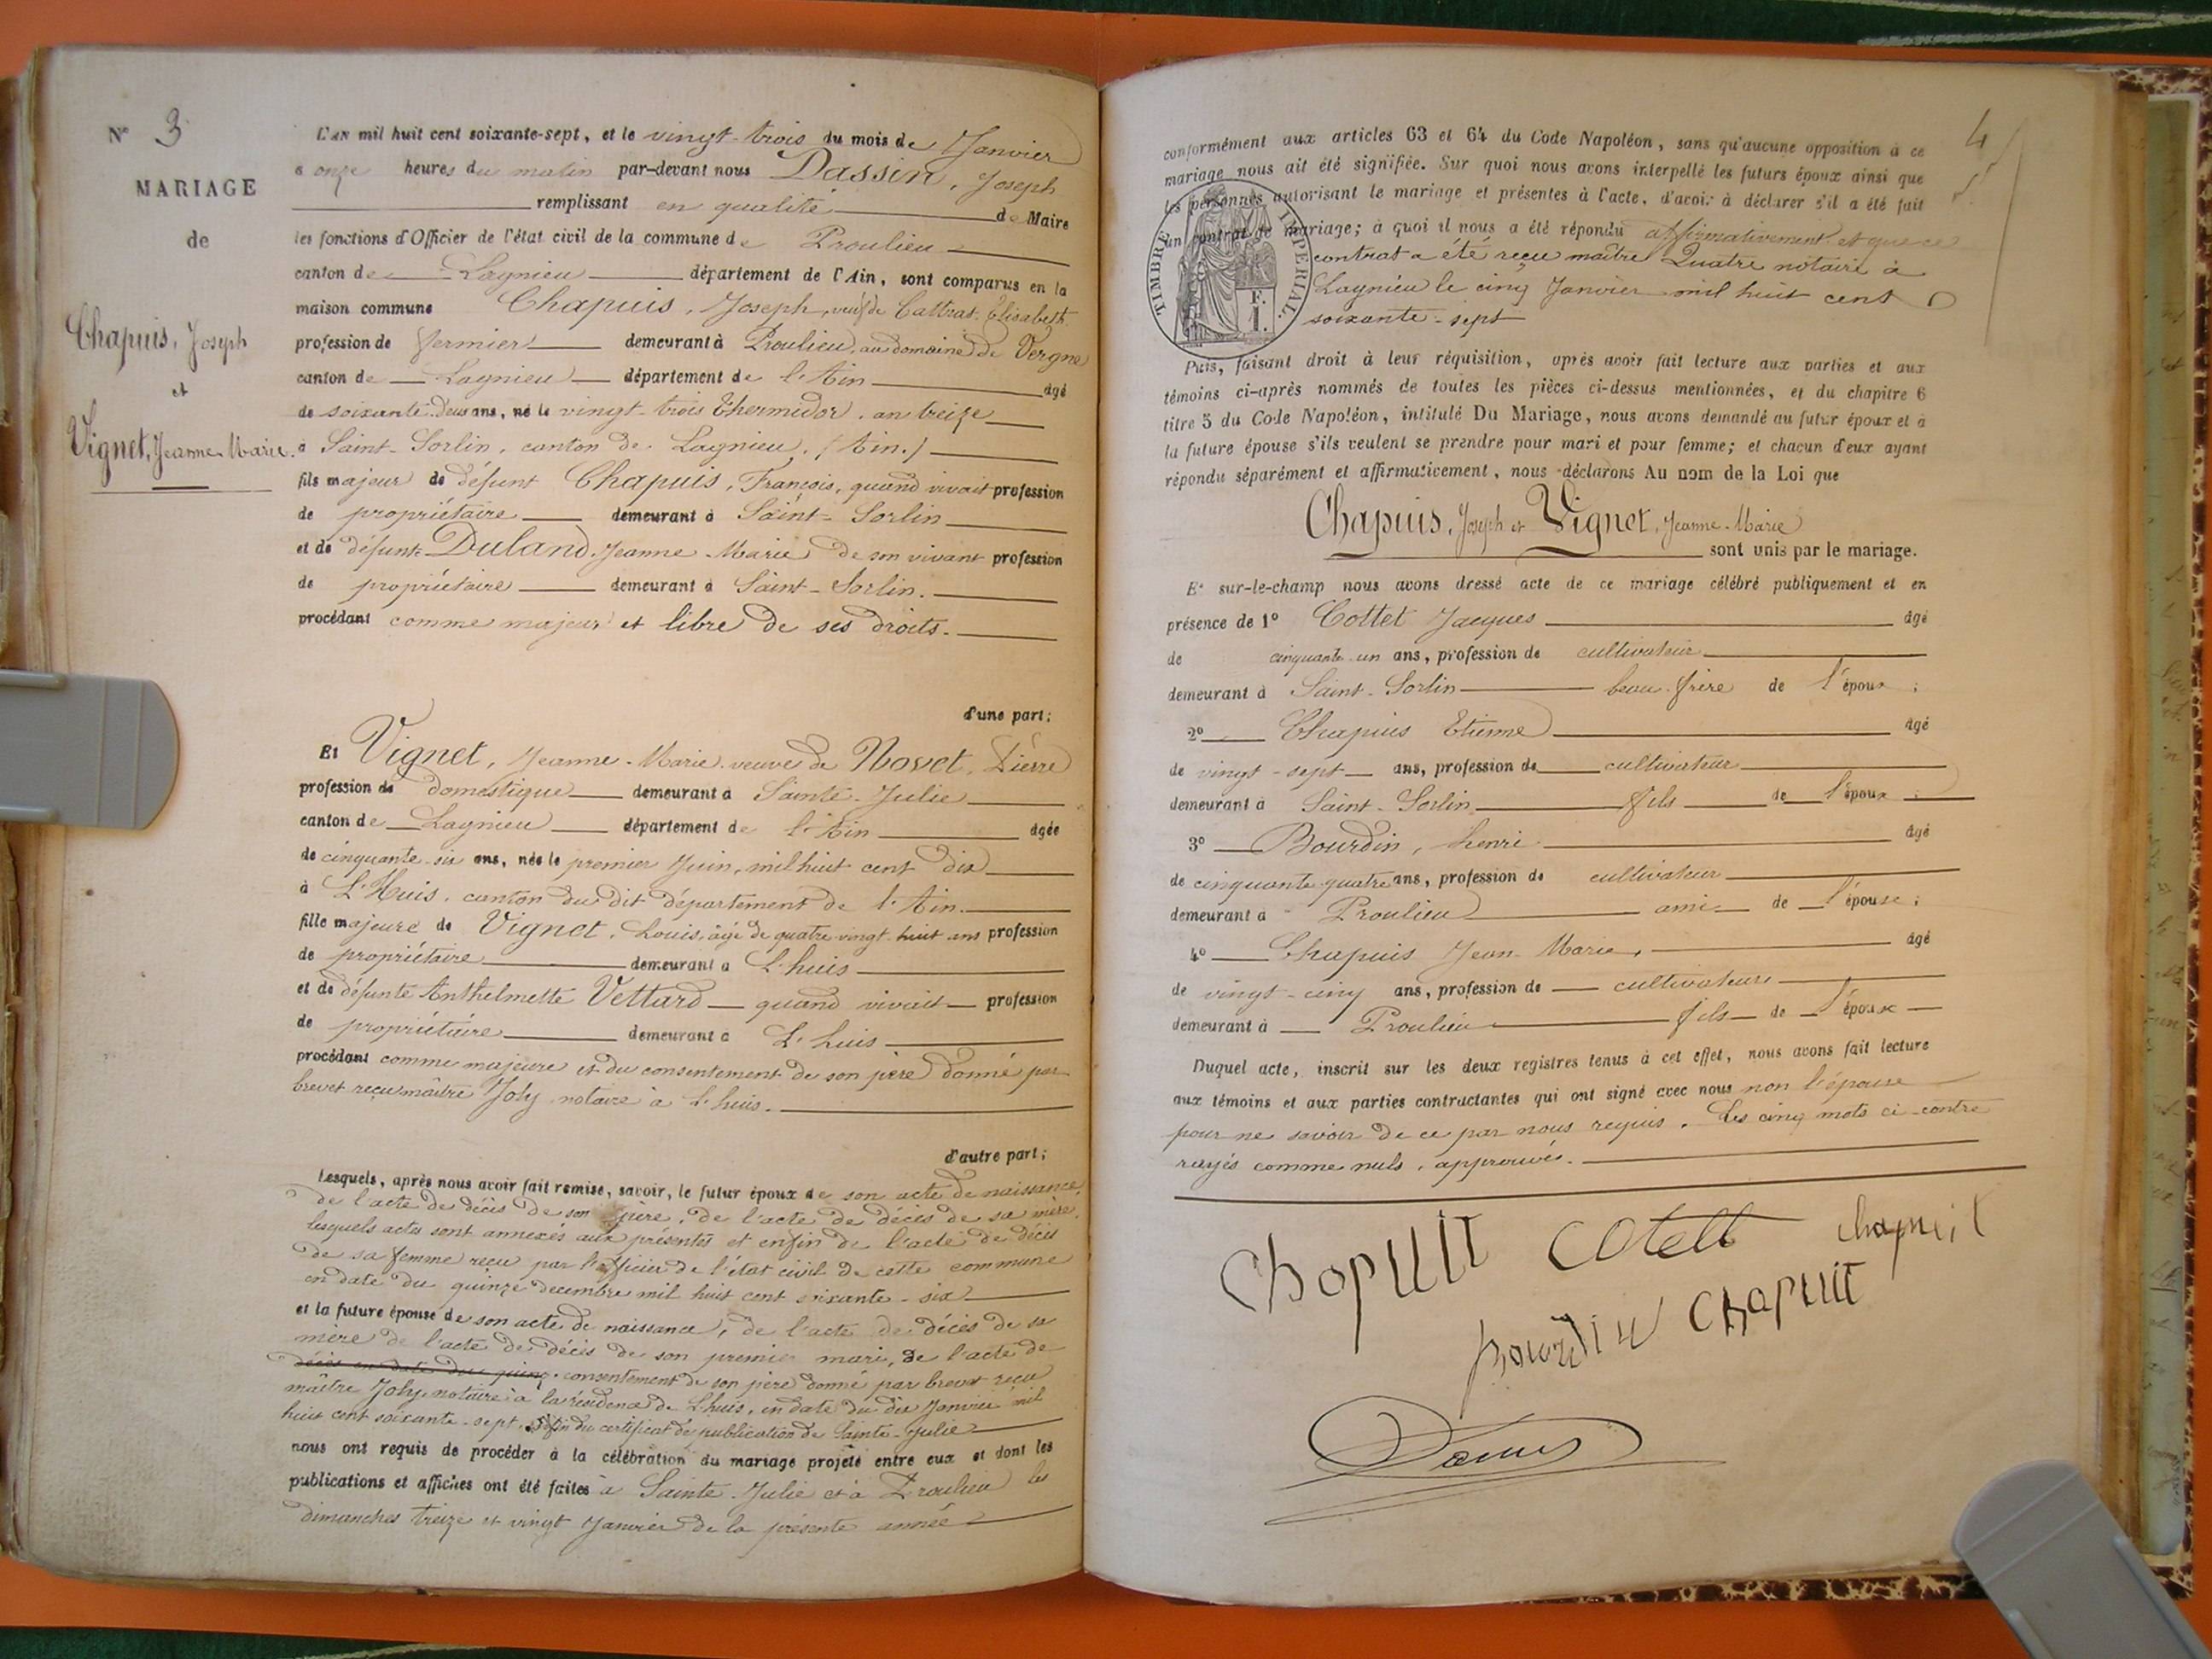 N° 3
MARIAGE
de
Chapuis, Joseph
et
Vignet, Jeanne-Marie.
L'an mil huit cent soixante-sept, et le vingt-trois du mois de Janvier
à onze heures du matin par-devant nous Dassin, Joseph
remplissant en qualité de Maire
les fonctions d'Officier de l'état civil de la commune de Proulieu
canton de Lagnieu département de l'Ain, sont comparus en la
maison commune Chapuis, Joseph, veuf de Cattrat Elisabeth
profession de fermier demeurant à Proulieu, au domaine de Vergne
canton de Lagnieu département de l'Ain âgé
de soixante-deux ans, né le vingt-trois Thermidor, an treize
à Saint-Sorlin, canton de Lagnieu, (Ain.)
fils majeur de défunt Chapuis, François, quand vivait profession
de propriétaire demeurant à Saint-Sorlin
et de défunte Duland, Jeanne-Marie de son vivant profession
de propriétaire demeurant à Saint-Sorlin.
procédant comme majeur et libre de ses droits.
d'une part;
Et Vignet, Jeanne-Marie veuve de Novet, Pierre
profession de domestique demeurant à Sainte-Julie
canton de Lagnieu département de l'Ain âgée
de cinquante-six ans, née le premier Juin, mil huit cent dix
à L'Huis, canton du dit département de l'Ain.
fille majeure de Vignet, Louis, âgé de quatre-vingt-huit ans profession
de propriétaire demeurant à L'huis
et de défunte Anthelmette Vettard quand vivait profession
de propriétaire demeurant à L'huis
procédant comme majeure et du consentement de son père donné par
brevet reçu maître Joly notaire à L'huis.
d'autre part;
Lesquels, après nous avoir fait remise, savoir, le futur époux de son acte de naissance,
de l'acte de décès de son père, de l'acte de décès de sa mère,
lesquels actes sont annexés aux présentes et enfin de l'acte de décès
de sa femme reçu par l'officier de l'état civil de cette commune
en date du quinze décembre mil huit cent soixante-six
et la future épouse de son acte de naissance, de l'acte de décès de sa
mère de l'acte de décès de son premier mari, de l'acte de
décès en date du quinz. consentement de son père donné par brevet reçu
maître Joly, notaire à la résidence de L'huis, en date du dix Janvier mil
huit cent soixante-sept, enfin du certificat de publication de Sainte-Julie
nous ont requis de procéder à la célébration du mariage projeté entre eux et dont les
publications et affiches ont été faites à Sainte-Julie et à Proulieu les
dimanches treize et vingt Janvier de la présente année
4
conformément aux articles 63 et 64 du Code Napoléon, sans qu'aucune opposition à ce
mariage nous ait été signifiée. Sur quoi nous avons interpellé les futurs époux ainsi que
les personnes autorisant le mariage et présentes à l'acte, d'avoir à déclarer s'il a été fait
un contrat de mariage; à quoi il nous a été répondu affirmativement et que ce
contrat a été reçu maître Quatre notaire à
Lagnieu le cinq Janvier mil huit cent
soixante-sept
TIMBRE IMPERIAL.
F.
1.
Puis, faisant droit à leur réquisition, après avoir fait lecture aux parties et aux
témoins ci-après nommés de toutes les pièces ci-dessus mentionnées, et du chapitre 6
titre 5 du Code Napoléon, intitulé Du Mariage, nous avons demandé au futur époux et à
la future épouse s'ils veulent se prendre pour mari et pour femme; et chacun d'eux ayant
répondu séparément et affirmativement, nous déclarons Au nom de la Loi que
Chapuis, Joseph et Vignet, Jeanne-Marie
sont unis par le mariage.
Et sur-le-champ nous avons dressé acte de ce mariage célébré publiquement et en
présence de 1° Cottet Jacques âgé
de cinquante-un ans, profession de cultivateur
demeurant à Saint-Sorlin beau-frère de l'époux;
2° Chapuis Etienne âgé
de vingt-sept ans, profession de cultivateur
demeurant à Saint-Sorlin fils de l'époux;
3° Bourdin, henri âgé
de cinquante-quatre ans, profession de cultivateur
demeurant à Proulieu ami de l'épouse;
4° Chapuis Jean-Marie, âgé
de vingt-cinq ans, profession de cultivateur
demeurant à Proulieu fils de l'époux
Duquel acte, inscrit sur les deux registres tenus à cet effet, nous avons fait lecture
aux témoins et aux parties contractantes qui ont signé avec nous non l'épouse
pour ne savoir de ce par nous requis. Les cinq mots ci-contre
rayés comme nuls, approuvés.
Chapuit Cotett chapuit
Bourdin Chapuit